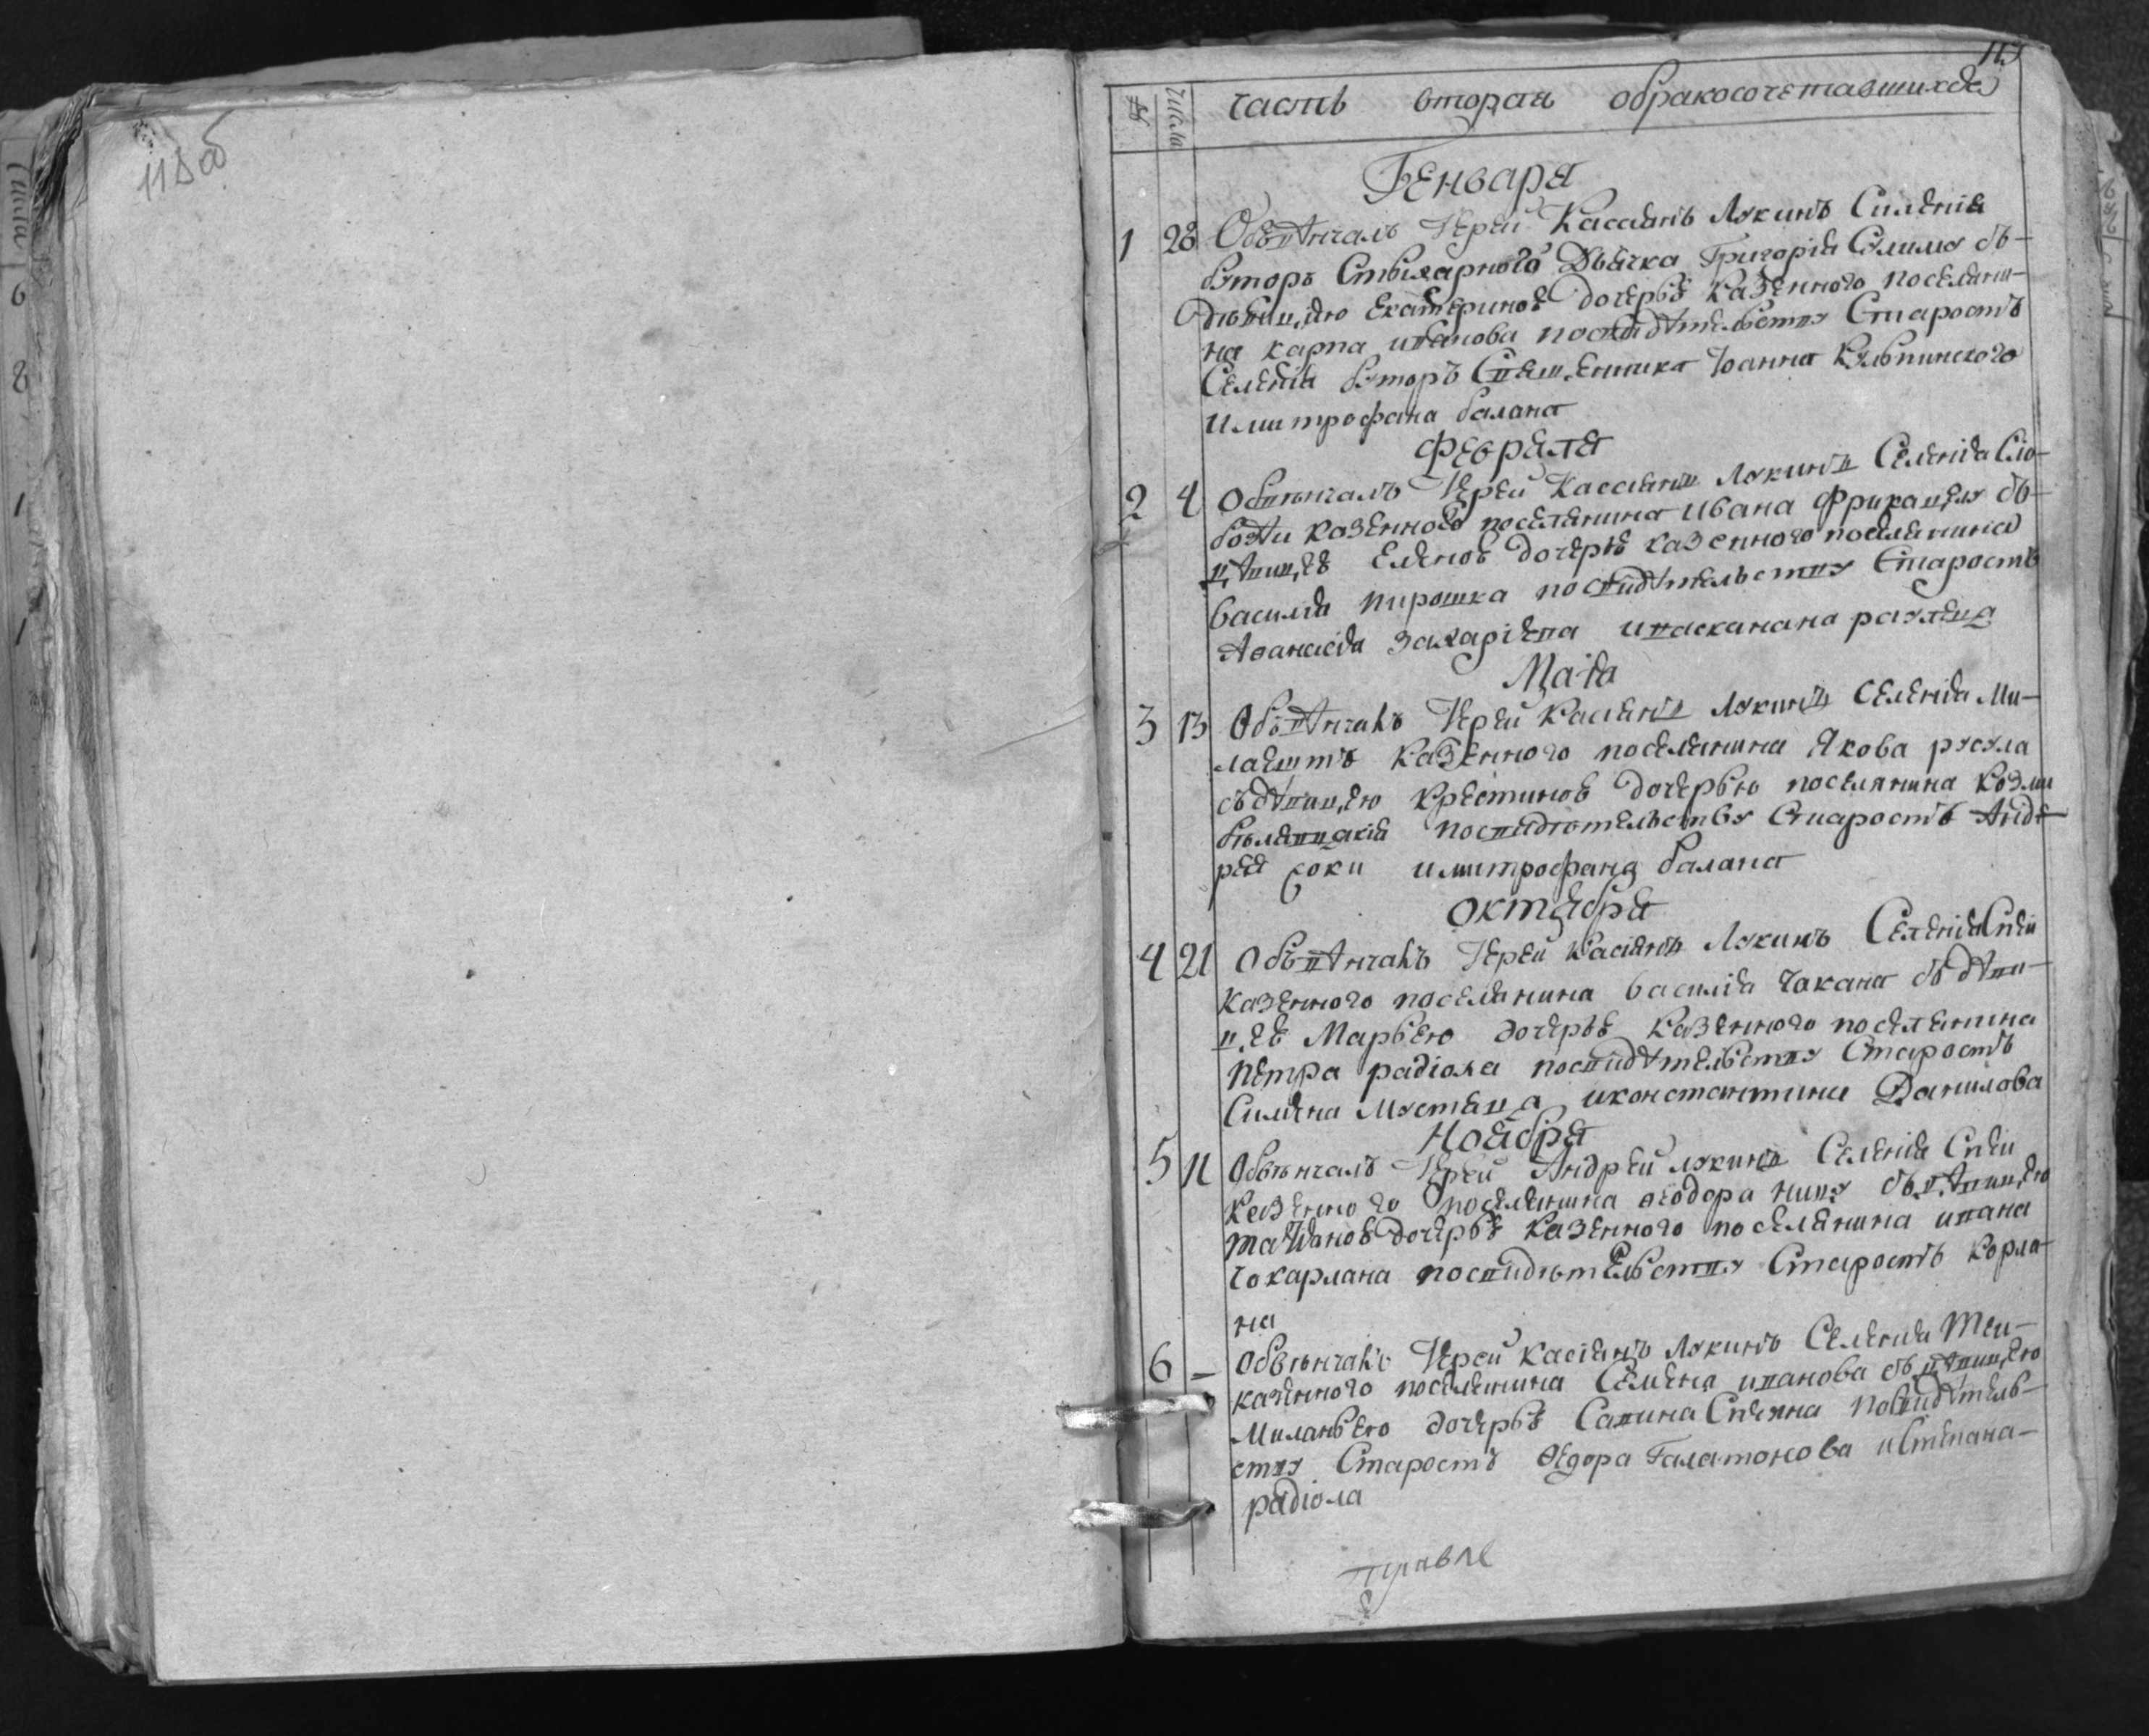 118 об
113
№ числа часть вторая обракосочетавшихся
Генваря
1 28 Обвѣнчалъ Иерей Кассіанъ Лукинъ Силенія
буторъ Стихарного Дьячка Григорія съ
дѣвицею Екатериноѣ дочерьѣ казенного поселяни-
на карпа иванова посвидѣтельству Старостъ
Селенія буторъ Священника Іоанна
имитрофана балана
Февраля
2 4 Обвѣнчалъ Иерей Кассіанъ Лукинъ Селенія Сло-
бозѣи казенного поселянина Ивана съ
дѣвицеѣ Еленоѣ дочерьѣ казенного поселянина
василія пирошка посвидѣтельству Старостъ
Аѳанасія Захаріева
Маія
3 13 Обвѣнчалъ Иерей Касіанъ Лукинъ Селенія Ми-
лаештъ Казенного поселянина Якова русула
съ дѣвицею Крестиноѣ дочерью поселянина Козми
посвидѣтельству Старостъ Анд-
рея имитрофана балана
Октября
4 21 Обвѣнчалъ Иерей Касіанъ Лукинъ Селенія Спеи
казенного поселянина василія Чакана съ дѣви-
цеѣ Марьею дочерьѣ Казенного поселянина
петра радіола посвидѣтельству Старостъ
Симіона Мустяца иконстантина Данилова
Ноября
5 11 Обвѣнчалъ Иерей Андрей лукинъ Селенія Спеи
Казенного поселянина ѳеодора съ дѣвицею
дочерьѣ Казенного поселянина ивана
Чокарлана посвидѣтельству Старостъ Корла-
на
6 – Обвѣнчалъ Иерей Касіанъ Лукинъ Селенія Теи-
казенного поселянина Семена иванова съ дѣвицею
Миланьею дочерьѣ посвидѣтель-
ству Старостъ Ѳедора Галатонова иСтепана-
радіола